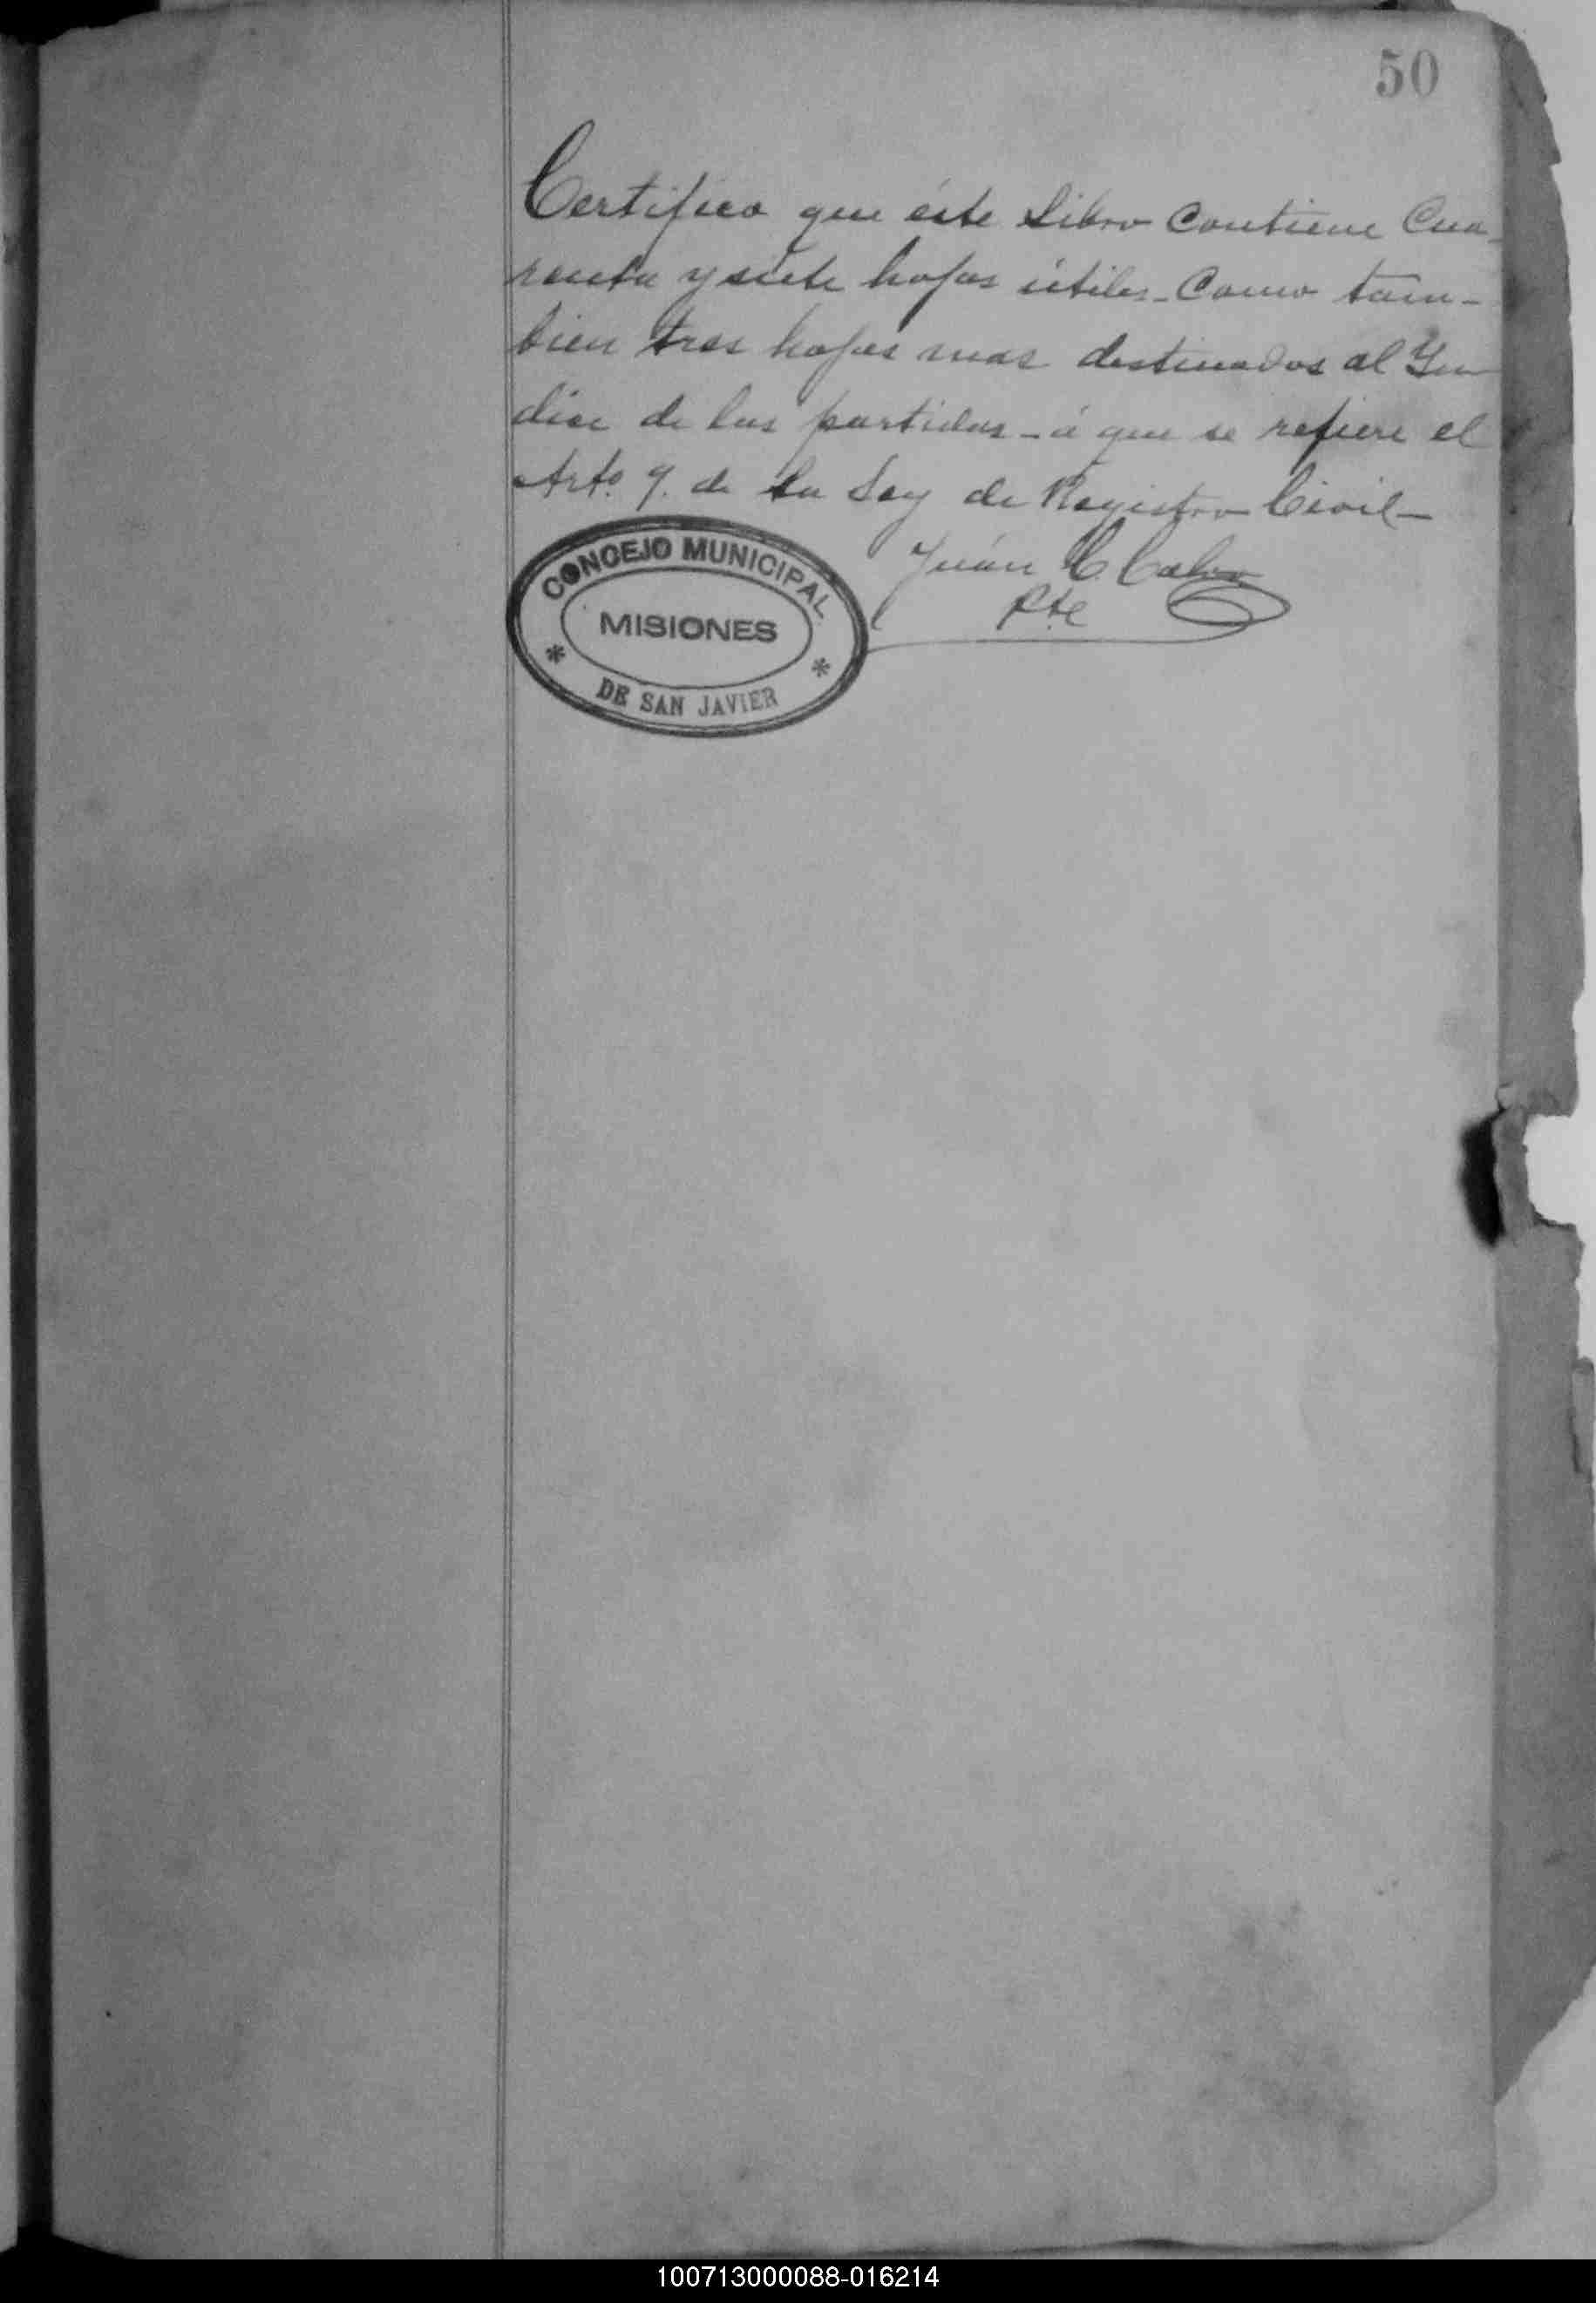 50
Certifico que éste Libro Contiene Cua-
renta y siete hojas útiles - Como tam-
bien tres hojas mas destinados al Yn
dice de las partidas - á que se refiere el
Arto. 9. de la Ley de Registro Civil -
Juán C. Calvo
Pte
CONCEJO MUNICIPAL
MISIONES
* DE SAN JAVIER *
100713000088-016214